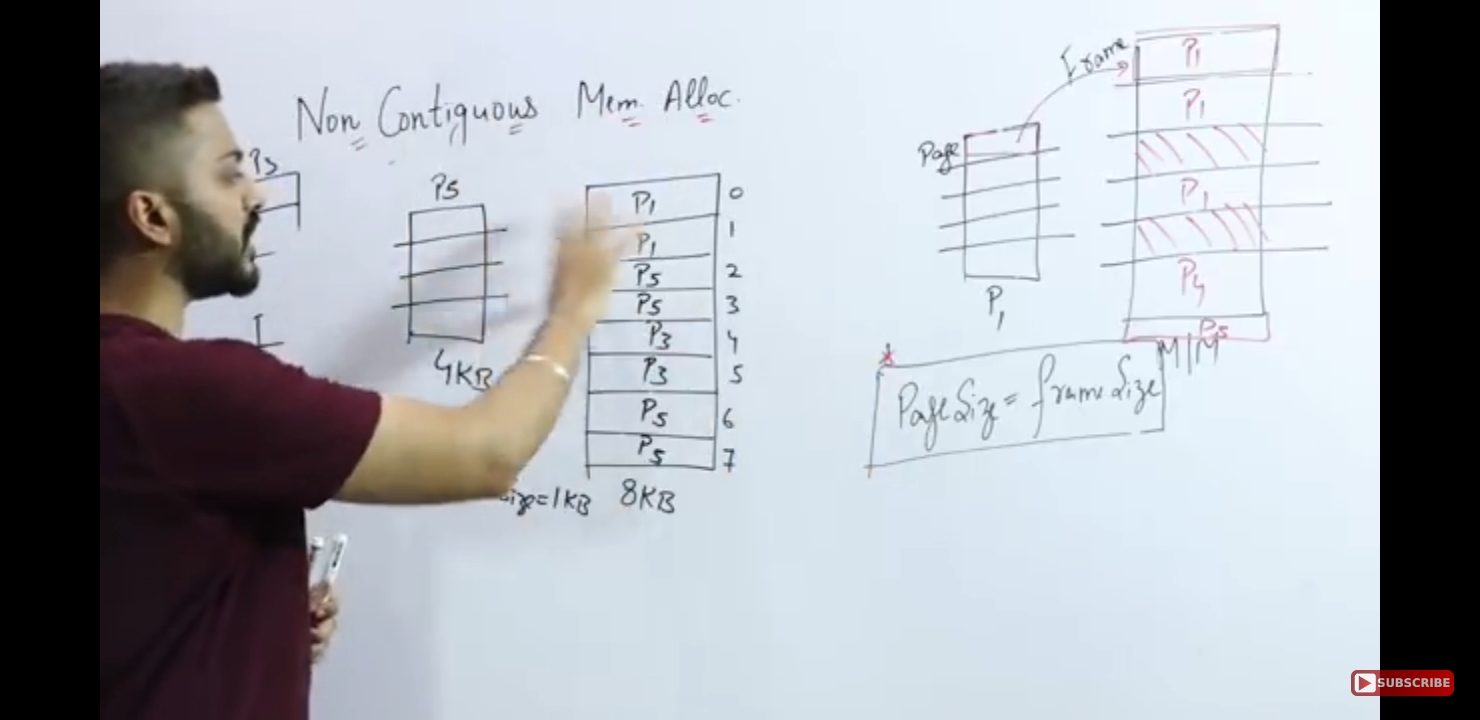 Non Contiguous Mem. Alloc.
P5
4KB
P1 0
P1 1
P5 2
P5 3
P3 4
P3 5
P5 6
P5 7
size=1KB 8KB
Page
P1
Frame
P1
P1
P1
P5
M/M
* Page Size = frame Size
SUBSCRIBE